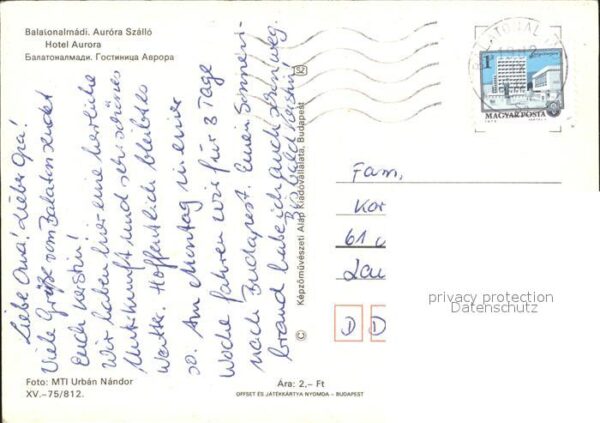 Balatonalmádi. Auróra Szálló
Hotel Aurora
Балатоналмади. Гостиница Аврора
Liebe Oma! Lieber Opa!
Viele Grüße vom Balaton sendet
Euch Kerstin!
Wir haben hier eine herrliche
Unterkunft und sehr schönes
Wetter. Hoffentlich bleibt es
so. Am Montag in einer
Woche fahren wir für 3 Tage
nach Budapest. Einen Sonnen-
brand habe ich auch schon weg.
Bis bald Kerstin!
Foto: MTI Urbán Nándor
XV.–75/812.
Ára: 2,– Ft
OFFSET ÉS JÁTÉKKÁRTYA NYOMDA – BUDAPEST
© Képzőművészeti Alap Kiadóvállalata, Budapest
SZ
BALATONALM
1Ft
MAGYAR POSTA
Fam.
Kar
61
Lau
D D
privacy protection
Datenschutz